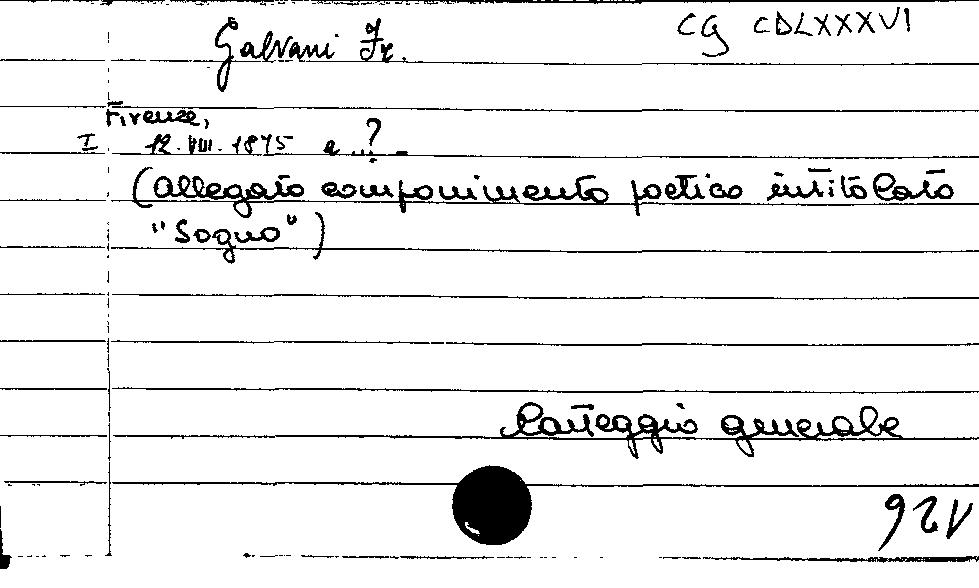 Galvani Fr.
CG CDLXXXVI
Firenze,
I 12.VIII.1875 a ...?
(allegato componimento poetico intitolato
"Sogno")
Carteggio generale
126